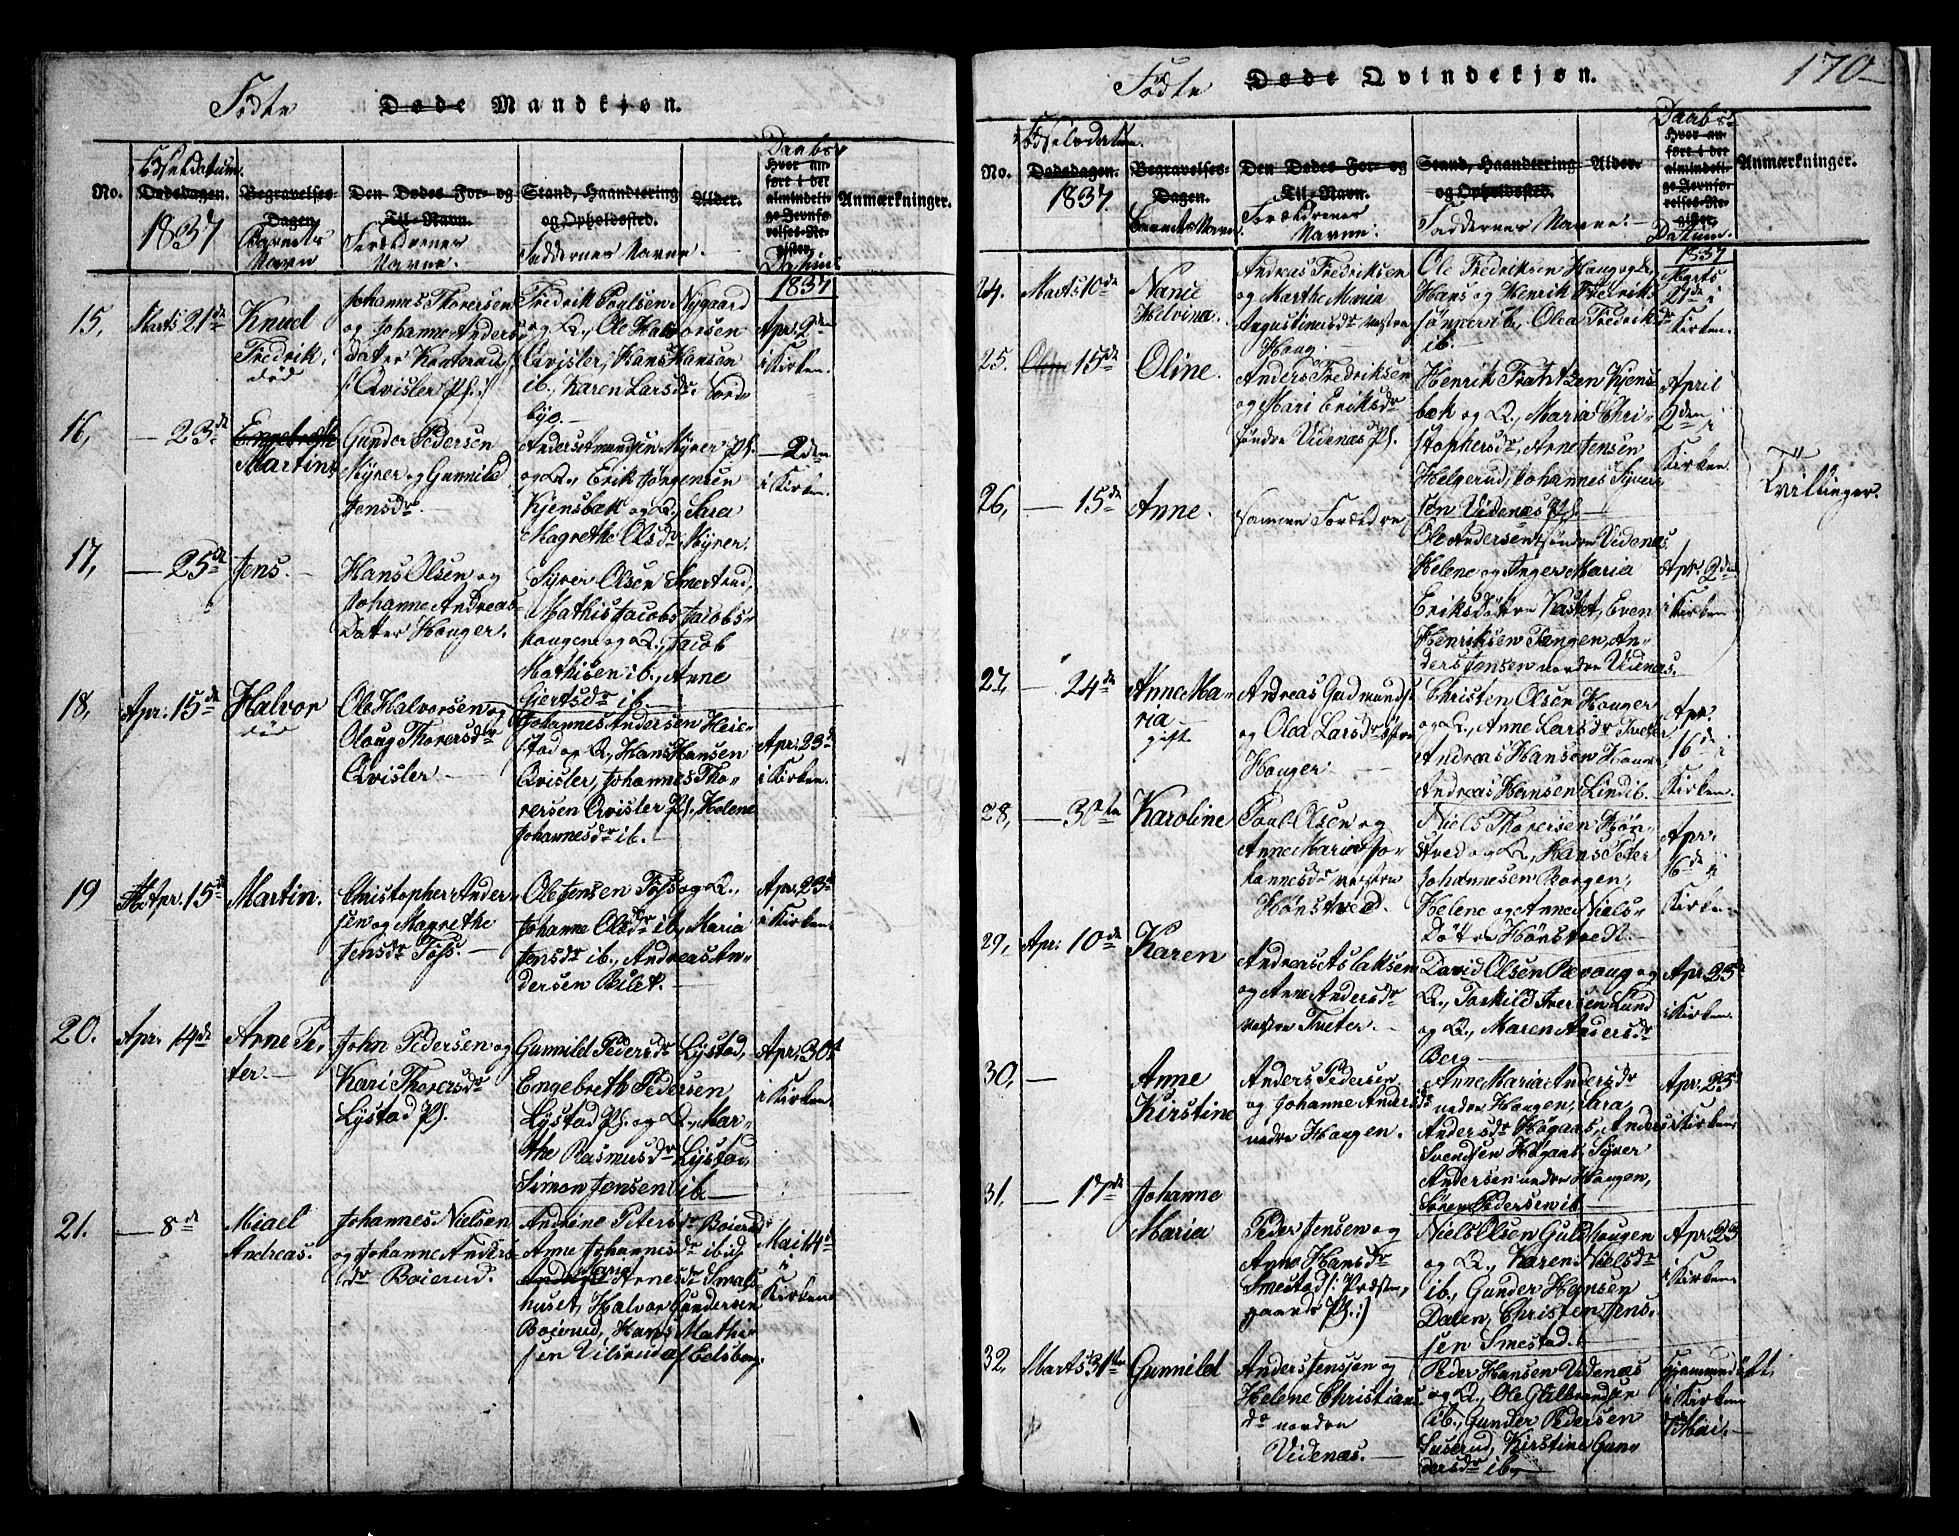 Fødte Døde Mandkjøn.
No.
Fødselsdatum.
Dødsdagen.
1837
Begravelses-
Dagen
Barnets
Navn
Den Dødes For- og
Til-Navn.
Forældrenes
Navne.
Stand, Haandtering
og Opholdssted.
Faddernes Navne.
Alder.
Daabs-
Hvor an-
ført i det
almindeli-
ge Jevnfø-
relses-Re-
gister.
Datum
1837
Anmærkninger.
15, Marts 21de
Knud
Fredrik.
død
Johannes Thoresen
og Johanne Anders
datter
(:Qvisler Pl:)
Fredrik Poulsen Nygaard
og Q., Ole Halvorsen
Qvisler, Hans Hansen
ib., Karen Larsdr. Nord
bye.
Apr. 2den
i Kirken.
16, — 23de
Engebreth
Martin
Gunder Pedersen
Myrer og Gunnild
Jensdr.
Anders Amundsen Myrer Pl.
og Q., Erik Jørgensen
Kjensbæk og Q., Sara
Magrethe Olsdr Myrer.
— 2den
i Kirken.
17, — 25de
Jens.
Hans Olsen og
Johanne Andreas-
Datter Houger.
Syver Olsen Smertud,
Mathis Jacobs Jacobs-
hougen og Q., Jacob
Mathisen ib., Anne
Giertsdr ib.
18, Apr. 15de
Halvor
død
Ole Halvorsen og
Oloug Thoresdr
Qvisler
Johannes Andersen Heie-
stad og Q., Hans Hansen
Qvisler, Johannes Tho-
resen Qvisler Pl. Helene
Johannesdr ib.
Apr. 23de
i Kirken.
19 Apr. 15de
Martin.
Christopher Ander-
sen og Magrethe
Jensdr Tøfs.
Ole Jensen Tøfs og Q.,
Johanne Olsdr ib., Maria
Jensdr ib., Andreas An-
dersen Bilet.
Apr. 23de
i Kirken.
20. Apr. 14de
Arne Pe-
ter.
John Pedersen og
Kari Thoresdr
Lystad Pl.
Gunnild Pedersdr Lystad,
Engebreth Pedersen
Lystad Pl. og Q., Mar-
the Rasmusdr Lystad,
Simon Jensen ib.
Apr. 30te
i Kirken.
21. — 8de
Miael
Andreas.
Johannes Nielsen
og Johanne Anders
dr Boierud.
Andrine Petersdr Boierud
Anne Johannesdr ibid,
Arnesdr Smals-
huset, Halvor Gundersen
Boierud, Hans Mathi-
sen Vilsrud af Eidsberg.
Mai 14de
i
Kirken
Fødte Døde Qvindekjøn. 170
No.
Fødselsdatum.
Dødsdagen.
1837.
Begravelses-
Dagen.
Barnets Navn.
Den Dødes For- og
Til-Navn.
Forældrenes
Navne.
Stand, Haandtering
og Opholdssted.
Faddernes Navne.
Alder.
Daabs-
Hvor an-
ført i det
almindeli-
ge Jevnfø-
relses-Re-
gister.
Datum.
1837
Anmærkninger.
24. Marts 10de
Nanie
Helvina.
Andreas Fredriksen
og Marthe Maria
Augustinusdr vestre
Houg.
Ole Fredriksen Houg og Q.
Hans og Henrik Fredriks
sønner ib., Olea Fredriksdr
ib.
Marts
27de i
Kirken.
25. 15de
Oline.
Anders Fredriksen
og Mari Eriksdr
søndre Videnæs Pl.
Henrik Frantzen Kjens
bæk og Q., Maria Chri-
stophersdr, Arne Jensen
Helgerud, Johannes Syver-
sen Videnæs Pl.
April
2den i
Kirken.
Tvillinger.
26, — 15de
Anne.
samme Forældre
Ole Andersen søndre Videnæs,
Helene og Inger Maria
Eriksdøttre Kastet, Even
Henriksen Tangen, An-
ders Jensen nordre Videnæs.
Apr. 2den
i Kirken
27, — 24de
Anne Ma-
ria
gift
Andreas Gudmunds
og Olea Larsdr østre
Houger
Christen Olsen Houger
og Q., Anne Larsdr Tveter
Andreas Hansen
Andreas Hansen Lindib.
Apr.
16de i
Kirken.
28, — 30te
Karoline
Poul Olsen og
Anne Marie Jo-
hannesdr vestre
Hønstved.
Niels Thoresen Høn-
stved og Q., Hans Peter
Johannesen Borgen,
Helene og Anne Niels-
Døttre Hønstvedt.
Apr.
16de i
Kirken
29, Apr. 10de
Karen
Andreas Aslaksen
og Anne Andersdr
vestre Tveter.
David Olsen Rævoug og
Q., Torkild Iversen Lund
og Q., Maren Andersdr
Berg
Apr. 23de
i Kirken.
30, —
Anne
Kirstine
Anders Pedersen
og Johanne Andersdr
nedre Hougen.
Anne Maria Andersdr
nedre Hougen, Sara
Andersdr Høgaas, Anders
Svendsen Høgaas, Syver
Andersen nedre Hougen,
Søren Pedersen ib.
Apr. 23de
i Kirken
31. — 17de
Johanne
Maria
Peder Jensen og
Anne Hansdr
Smestad (: Præste-
gaards Pl.:)
Niels Olsen Guldhougen
og Q., Karen Nielsdr
ib., Gunder Hansen
Dalen, Christen Jens-
sen Smestad.
Apr. 23
i Kirken
32, Marts 31te
Gunnild
Anders Jenssen og
Helene Christians
dr nordre
Videnæs.
Peder Hansen Videnæs
og Q., Ole Gulbrandsen
ib., Gunder Pedersen
Suserud, Kirstine Gun-
dersdr ib.
Hjemmedøbt,
i Kirken
Mai.